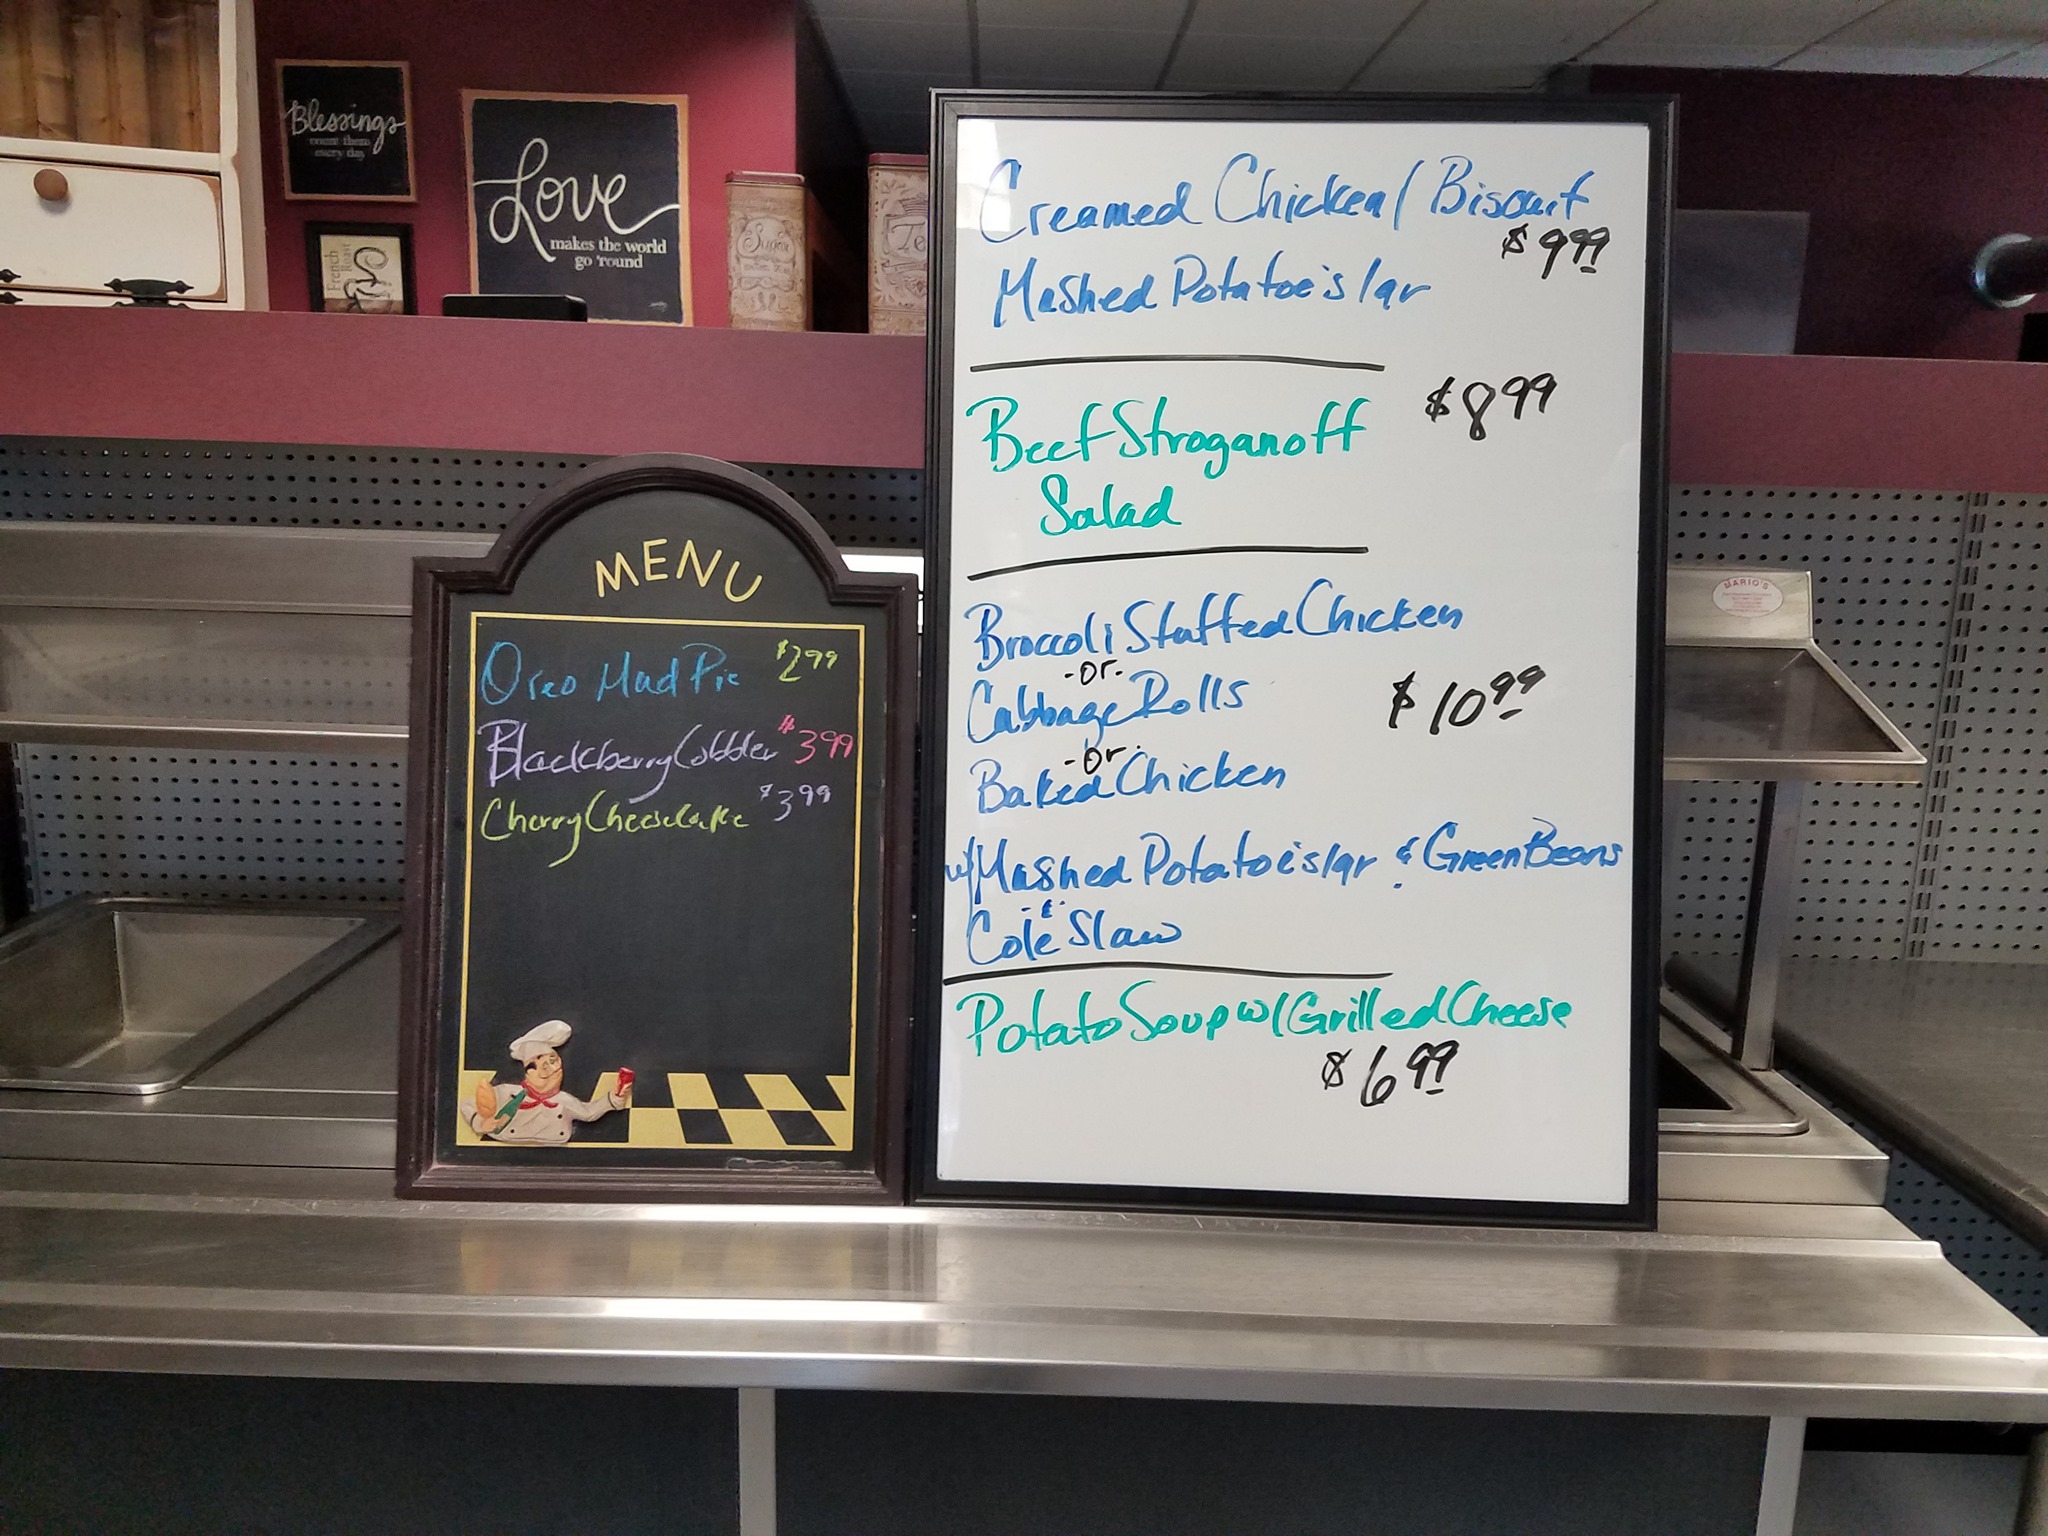 Blessings
count them
every day
Love
makes the world
go 'round
French
Roast
Sugar
Te
MENU
Oreo Mud Pie $2.99
Blackberry Cobbler $3.99
Cherry Cheesecake $3.99
Creamed Chicken / Biscuit
$9.99
Mashed Potatoe's / gr
$8.99
Beef Stroganoff
Salad
Broccoli Stuffed Chicken
-or-
Cabbage Rolls $10.99
-or-
Baked Chicken
w/ Mashed Potatoe's / gr & Green Beans
-&-
Cole Slaw
Potato Soup w/ Grilled Cheese
$6.99
MARIO'S